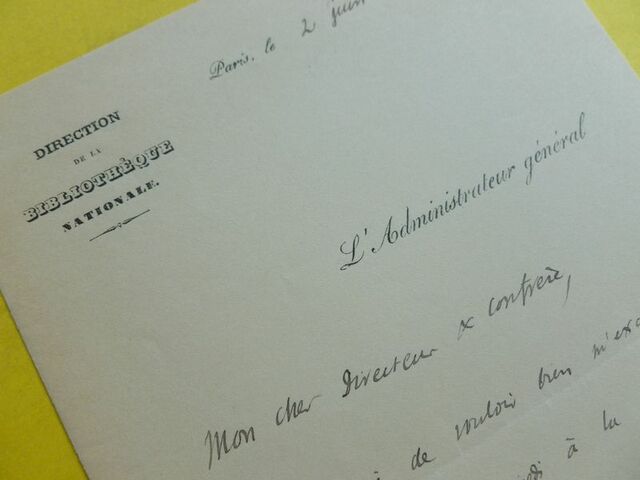 Paris, le 2 juin
DIRECTION
DE LA
BIBLIOTHÈQUE
NATIONALE.
L'Administrateur général
Mon cher Directeur & confrère,
de vouloir bien m'exc
à la